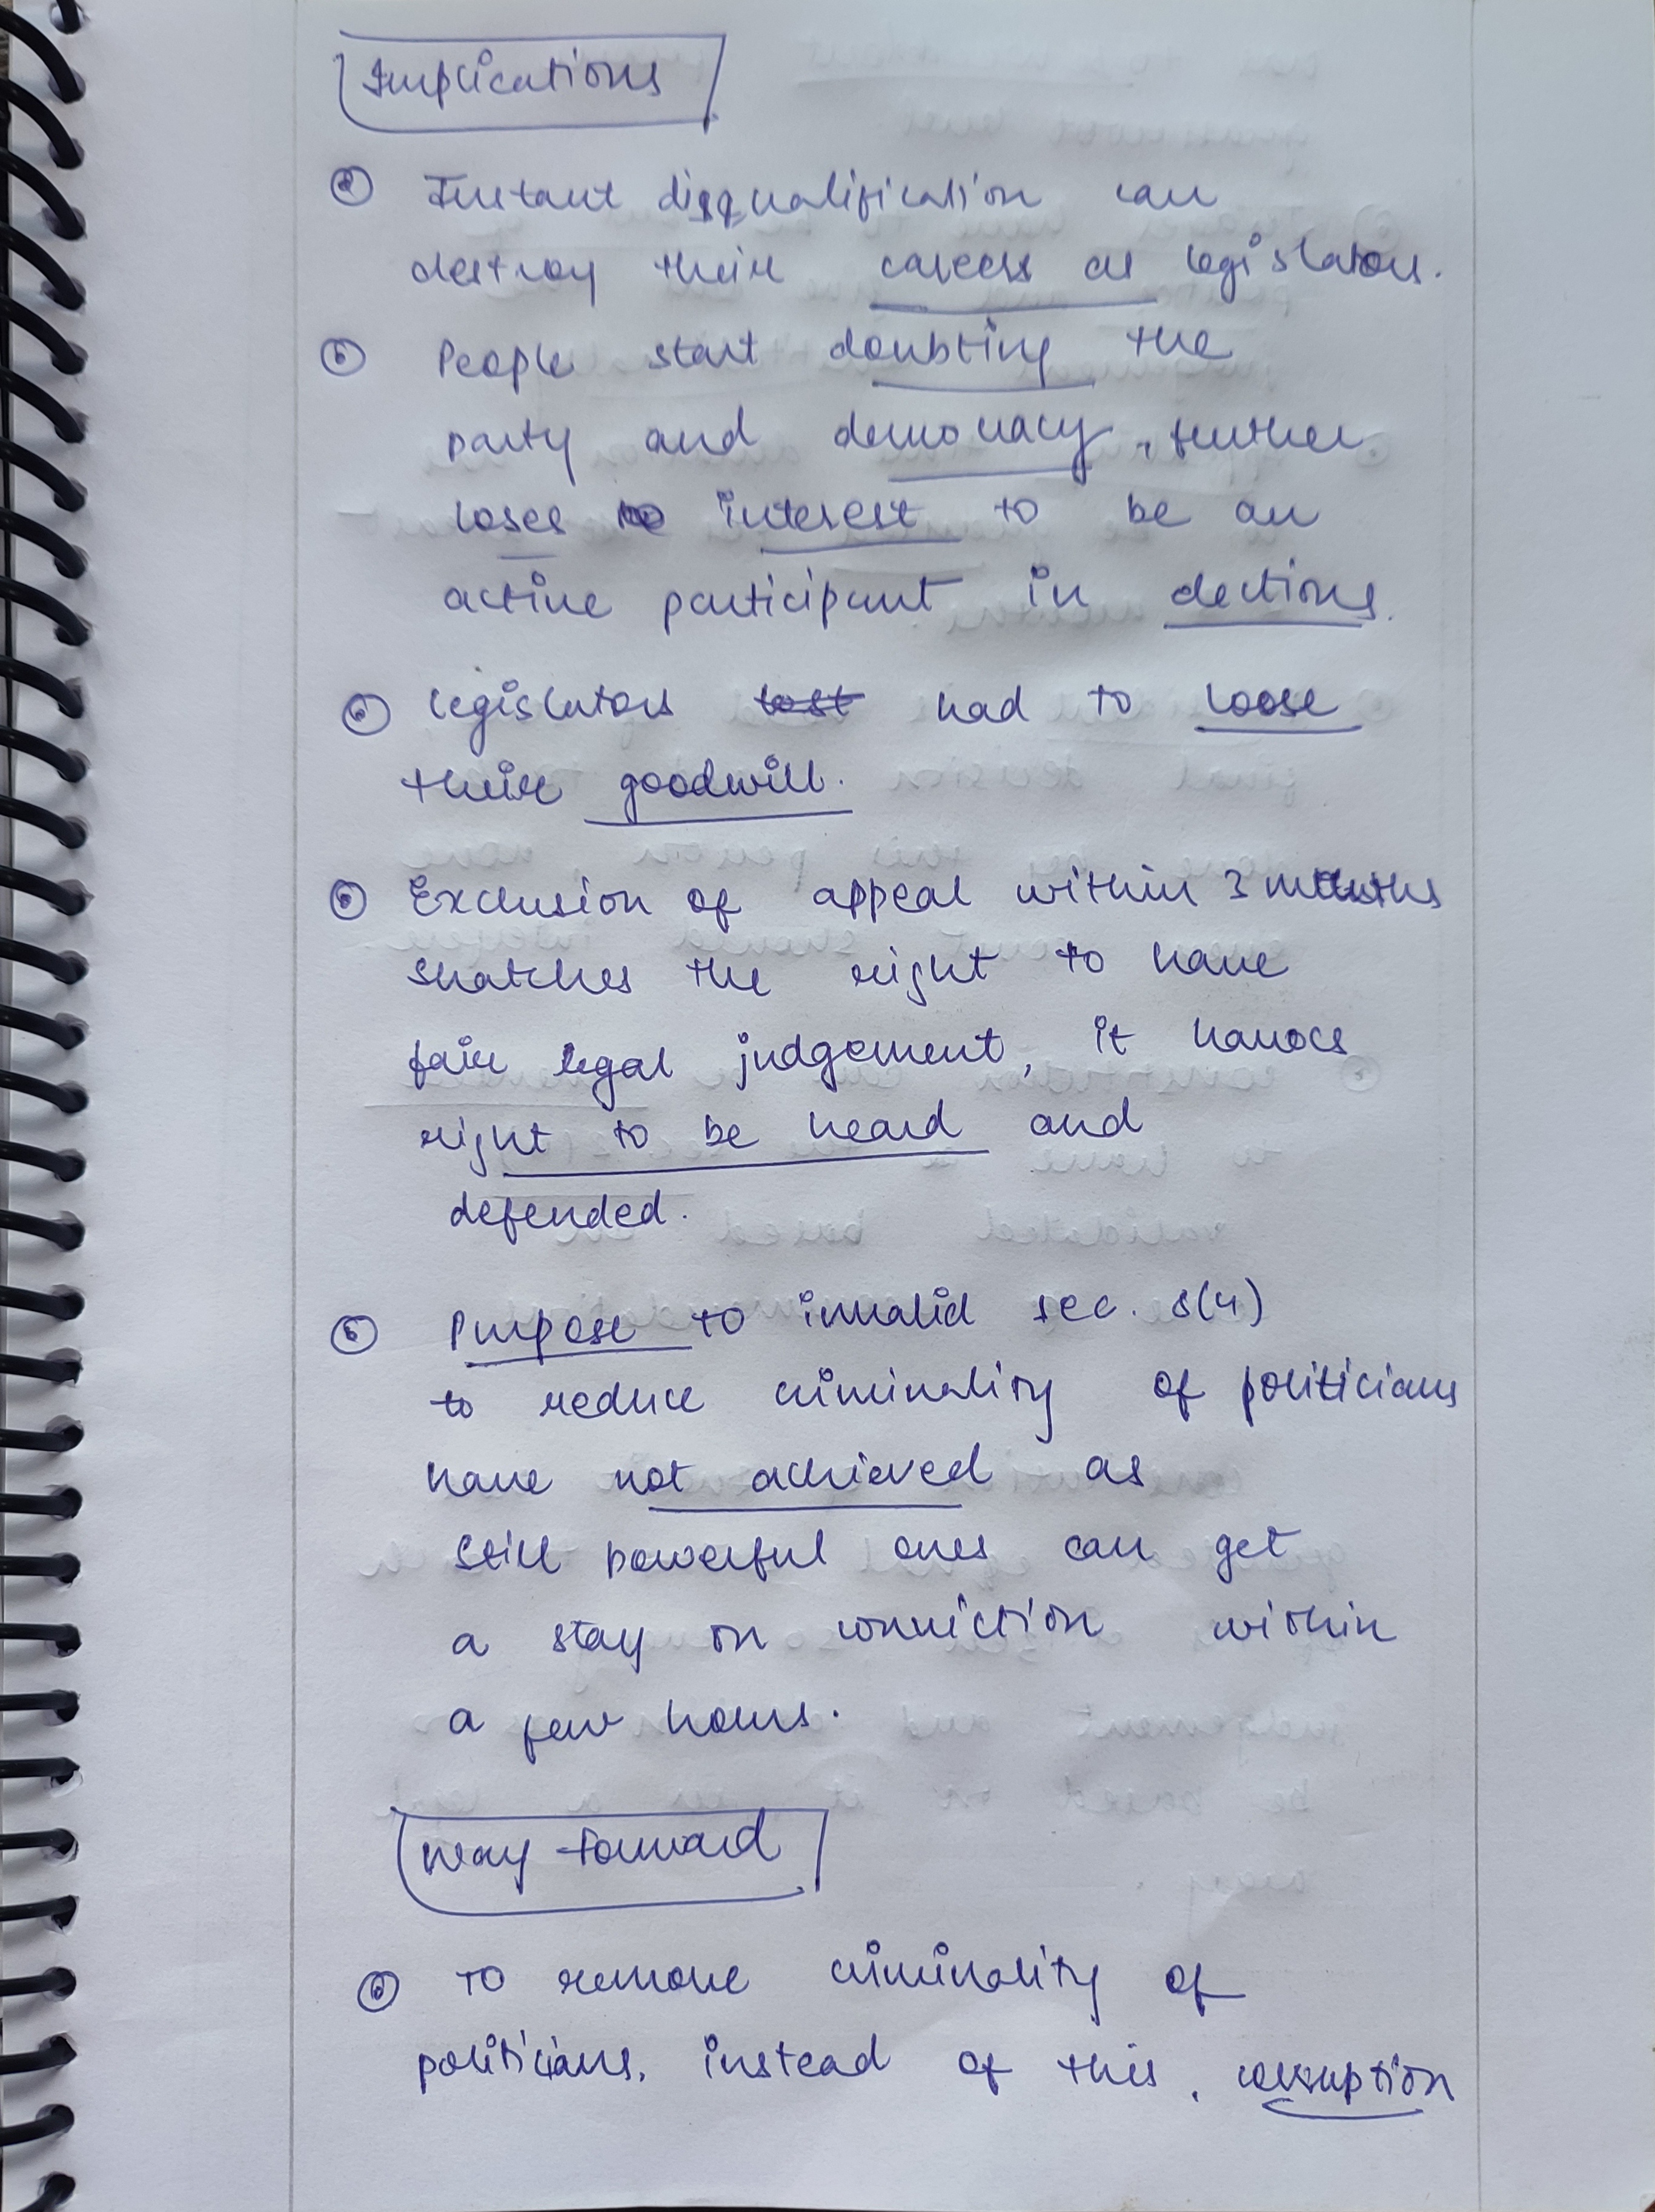 Implications
Instant disqualification can
destroy their careers as legislators.
People start doubting the
party and democracy, further
loses interest to be an
active participant in elections.
legislators lost had to loose
their goodwill.
Exclusion of appeal within 3 months
snatches the right to have
fair legal judgement, it havocs
right to be heard and
defended.
Purpose to invalid sec. 8(4)
to reduce criminality of politicians
have not achieved as
still powerful ones can get
a stay on conviction within
a few hours.
Way forward
To remove criminality of
politicians, instead of this, corruption